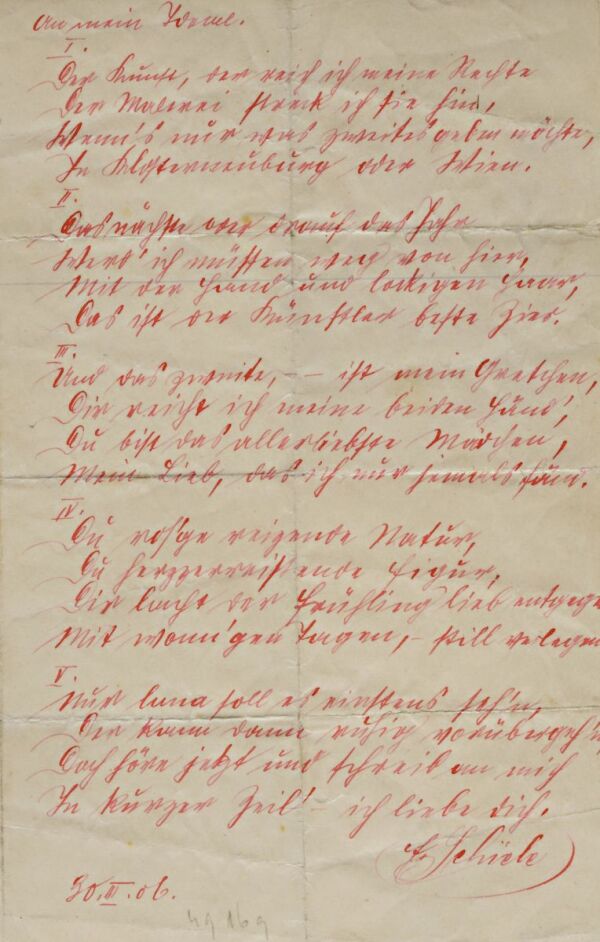 An mein Ideal.
I.
Der Kunst, der reich ich meine Rechte
Der Malerei streck ich sie hin,
Wenn's nur was zweites geben möchte,
In Klosterneuburg oder Wien.
II.
Das nächste oder drauf das Jahr
Werd' ich müssen weg von hier,
Mit der Hand und lockigen Haar,
Das ist der Künstler beste Zier.
III.
Und das zweite, – – ist mein Gretchen,
Dir reicht ich meine beiden Händ',
Du bist das allerliebste Mädchen,
Mein Lieb, das ich nur jemals fänd.
IV.
Du ros'ge reizende Natur,
Du herzzerreißende Figur,
Dir lacht der Frühling lieb entgege
Mit wonn'gen Tagen, – still verlegen
V.
Nur soll es einstens
Der kann dann ruhig vorübergeh'n
Doch höre jetzt und schreib an mich
In kurzer Zeil' – ich liebe dich.
E. Schiele
30.III.06.
49 169